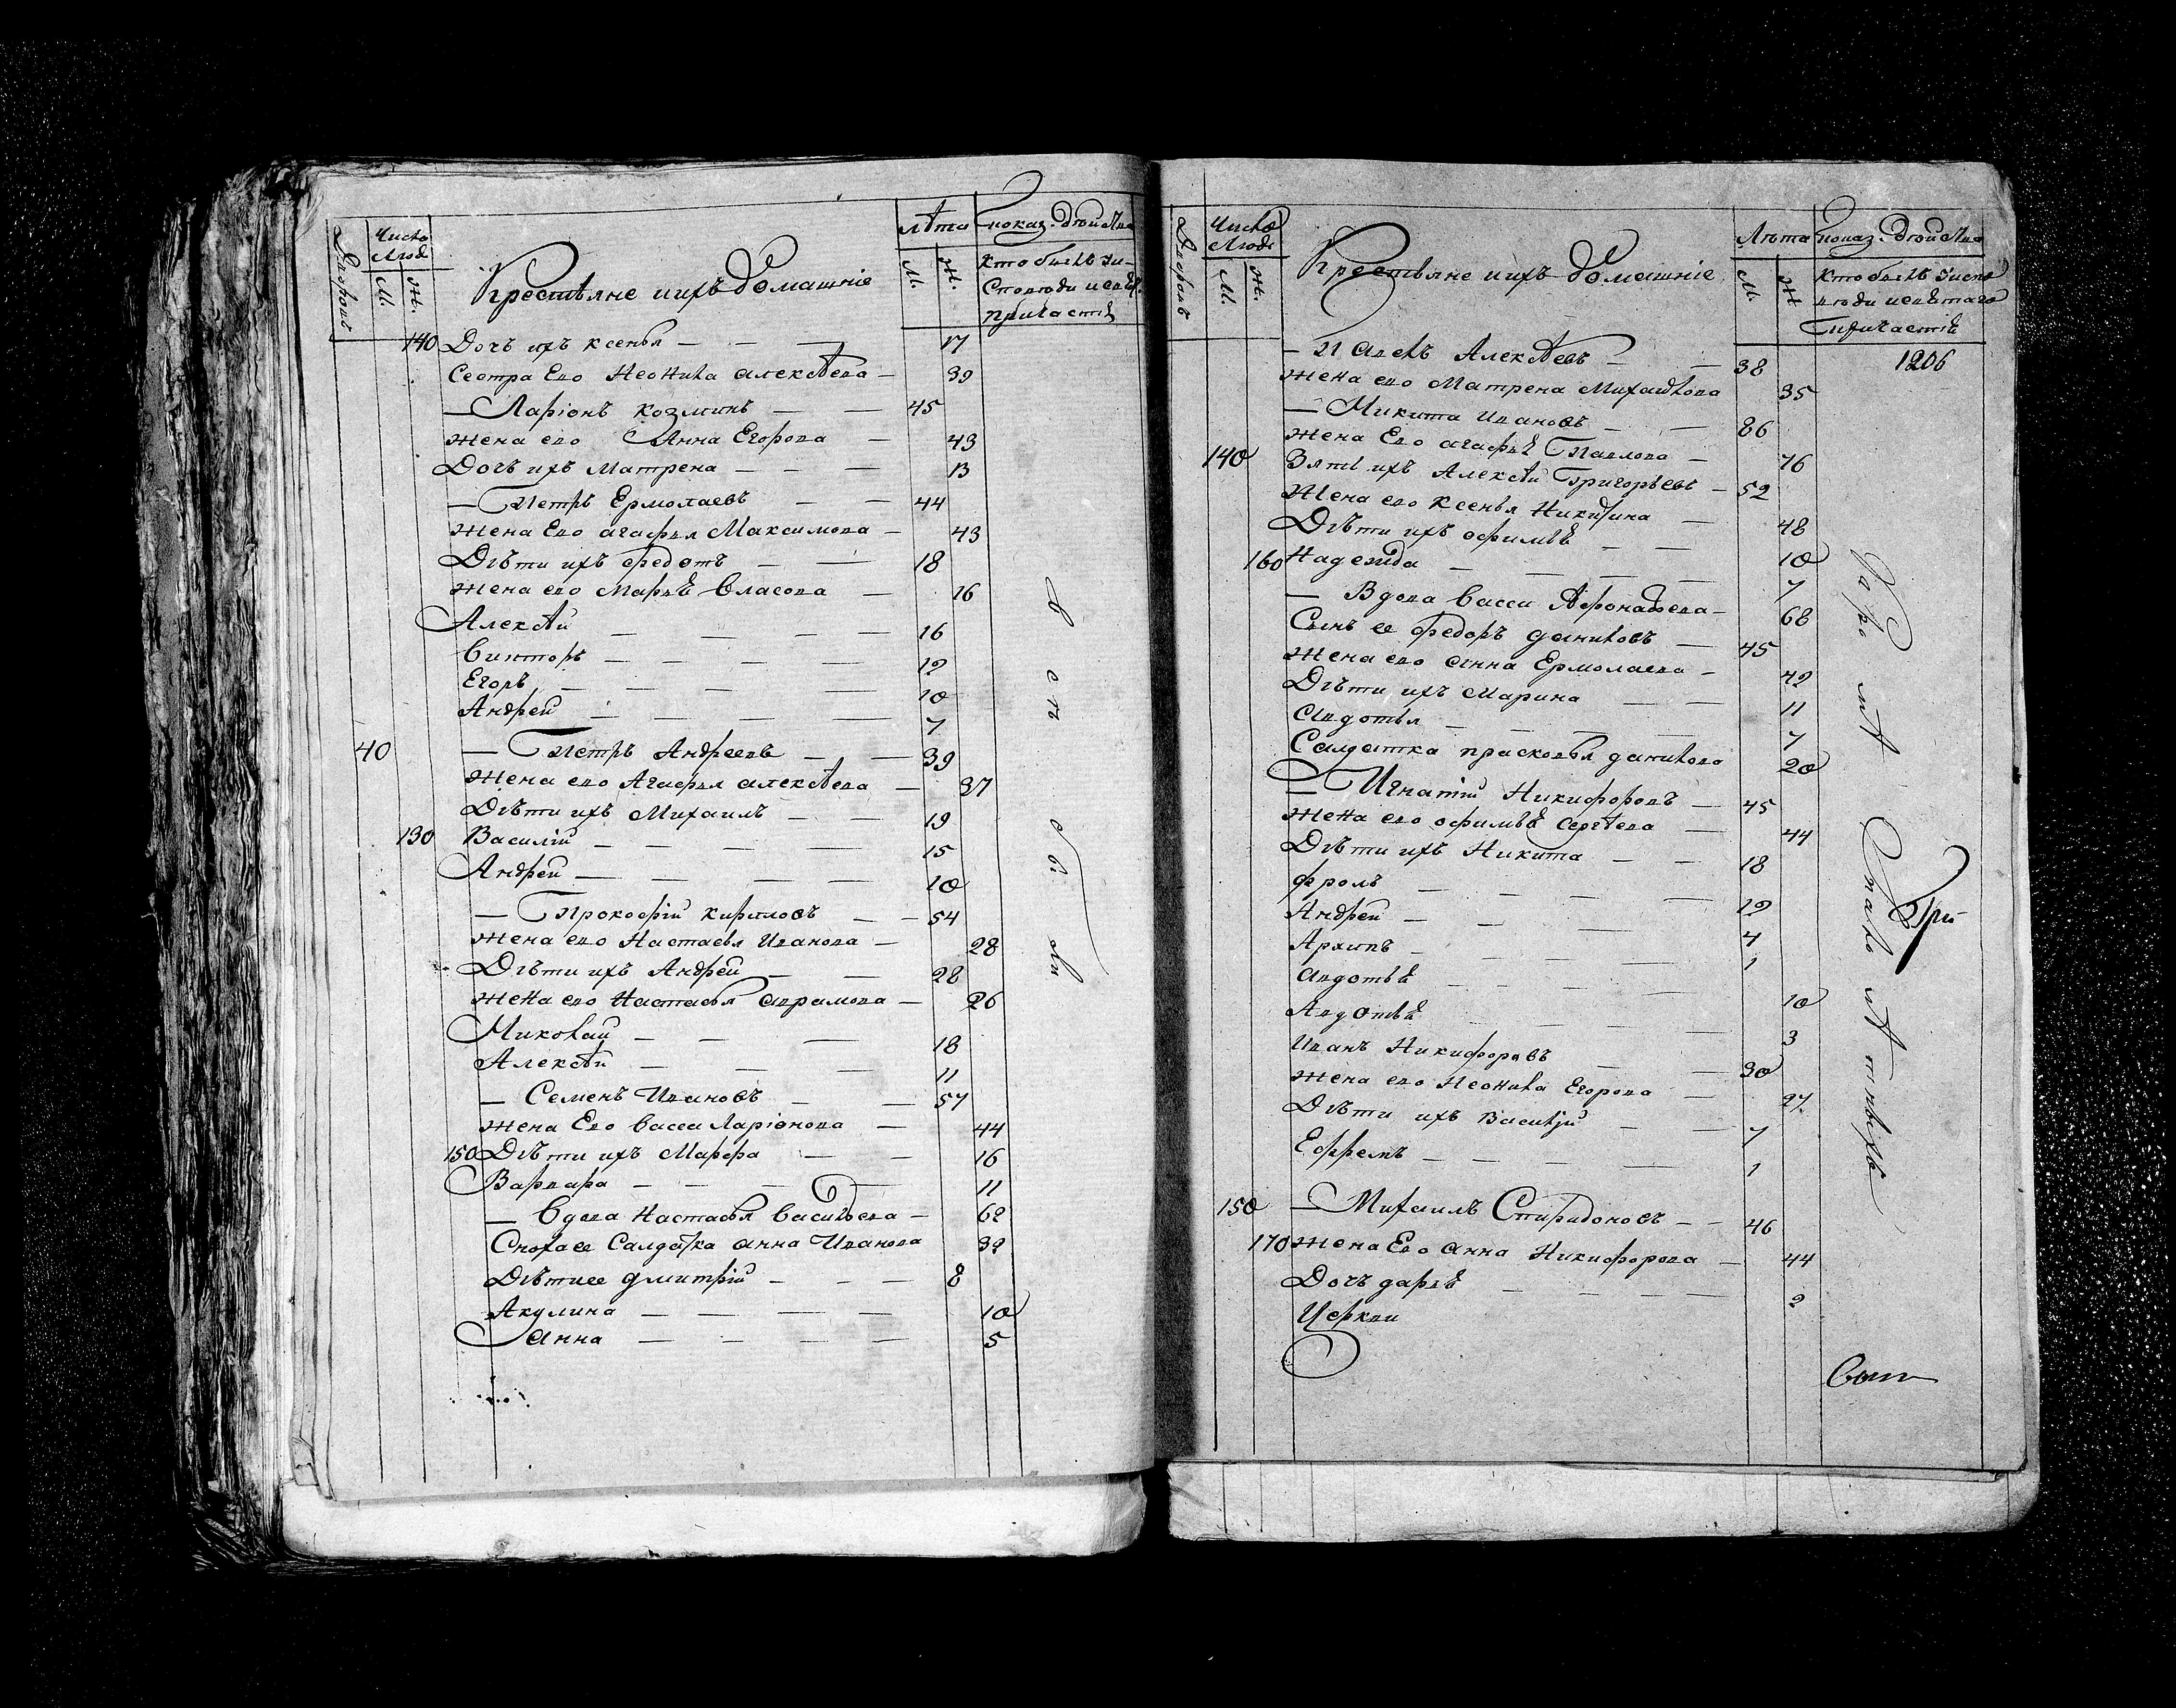 Дворовъ
Число Люд
М.
Ж.
Крестьяне и ихъ домашніе
лѣта
М.
Ж.
показ. дѣйства
Кто былъ у и-
споведи и свят.
причастія
140 Дочь ихъ ксенья — — — 17
Сестра Ево Неонила алексѣева — 39
— Ларіонъ козминъ — — 45
жена ево Анна Егорова — 43
Дочь ихъ Матрена — — — 13
— Петръ Ермолаевъ — — 44
жена Ево агафья Максимова — 43
Дѣти ихъ федотъ — — 18
жена ево Марья власова — 16
Алексѣй — — — — 16
викторъ — — — — 12
Егоръ — — — — 10
Андрей — — — — 7
40 — Петръ Андреевъ — — 39
жена ево Агафья алексѣева — 37
Дѣти ихъ Михаилъ — — 19
130 Василій — — — — 15
Андрей — — — — 10
— Прокофій кириловъ — — 54
жена ево Настасья Иванова — 28
Дѣти ихъ Андрей — — 28
жена ево Настасья аврамова — 26
Николай — — — 18
Алексѣй — — — 11
— Семенъ Ивановъ — — 57
жена Ево васса Ларіонова — 44
150 Дѣти ихъ Марфа — — 16
Варвара — — — — 11
— вдова Настасья васильева — 62
Сноха ее Салдатка анна Иванова 32
Дѣти ее дмитрій — — — 8
Акулина — — — — 10
анна — — — — 5
Дворовъ
Число Люде
М.
Ж.
Крестьяне и ихъ домашніе
Лѣта
М.
Ж
показ. дѣйства
Кто былъ у испо
веди и святаго
причастія
1206
— Павелъ Алексѣевъ — — 38
жена ево Матрена Михайлова 35
— Микита Ивановъ — — 86
жена Ево агафья Павлова — 76
140 Зять ихъ Алексѣй Григорьевъ — 52
Жена ево ксенья Никитина — 48
Дѣти ихъ офимья — — 10
160 Надежда — — — — 7
— Вдова васса Афонасьева — 68
Сынъ ее федоръ даниловъ — 45
жена ево анна Ермолаева — 42
Дѣти ихъ Марина — — 11
авдотья — — — — 7
Салдатка прасковья данилова 20
— Игнатій Никифоровъ — 45
жена ево офимья Сергѣева — 44
Дѣти ихъ Никита — — 18
фролъ — — — — 12
Андрей — — — — 4
Архипъ — — — — 1
авдотья — — — — 10
Авдотья — — — — 3
Иванъ Никифоровъ — — 30
жена ево Неонила Егорова — 27
Дѣти ихъ Василій — — 7
Ефремъ — — — — 1
150 — Михаилъ Спиридоновъ — — 46
170 жена Ево анна Никифорова — 44
Дочь дарья — — — — 2
Церкви
в сп о в ѣ
Кромѣ малолѣтнихъ